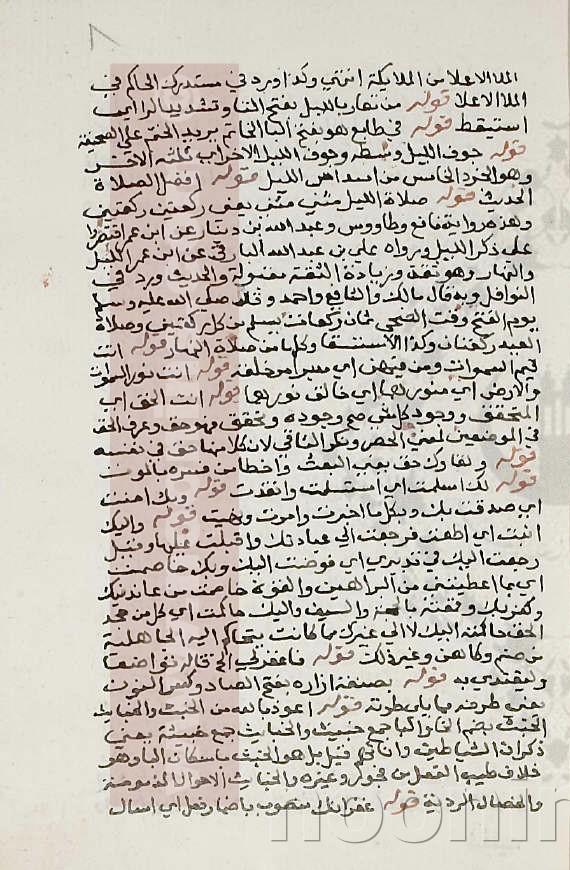 ٨
الملا الاعلا من الملايكة انتهي وكذا ورد في مستدرك الحاكم في
الملا الاعلا قوله من تعار بالليل بفتح التا وتشديد الرا اي
استيقظ قوله في طابع هو بفتح البا الخاتم يريد الختم علي الصحيفة
قوله جوف الليل وسطه وجوف الليل الاخر اي ثلثه الاخر
وهو الجزء الخامس من اسداس الليل قوله افضل الصلاة
الحديث قوله صلاة الليل مثني مثني يعني ركعتين ركعتين
وهذه رواية نافع وطاووس وعبد الله بن دينار عن ابن عمر اقتصروا
علي ذكر الليل ورواه علي بن عبد الله البارقي عن ابن عمر الليل
والنهار وهو ثقة وزيادة الثقة مقبولة والحديث ورد في
النوافل وبه قال مالك والشافعي واحمد وقد صلي الله عليه وسلم
يوم الفتح وقت الضحي ثمان ركعات يسلم من كل ركعتين وصلاة
العيد ركعتان وكذا الاستسقا وكلها من صلاة النهار قوله انت
قيم السموات ومن فيهن اي مدبر امر خلقه قوله انت نور السموات
والارض اي منورها اي خالق نورهما قوله انت الحق اي
المتحقق وجود كل شي صح وجوده وتحقق فهو حق وعرف الحق
في الموضعين لمعني الحصر ونكر الباقي لان كلا منها حق في نفسه
قوله ولقاوك حق يعني البعث واخطا من فسره بالموت
قوله لك اسلمت اي استسلمت وانقدت قوله وبك امنت
اي صدقت بك وبكل ما اخبرت وامرت ونهيت قوله واليك
انبت اي اطعت ورجعت الي عبادتك واقبلت عليها وقيل
رجعت اليك في تدبيري اي فوضت اليك وبك خاصمت
اي بما اعطيتني من البراهين والقوة خاصمت من عاند فيك
وكفر بك وقمعته بالحجة والسيف واليك حاكمت اي كل من جحد
الحق حاكمته اليك لا الي غيرك مما كانت تتحاكم اليه الجاهلية
من صنم وكاهن وغير ذلك قوله فاغفر لي الخ قاله تواضعا
وليقتدي به قوله بصنفة ازاره بفتح الصاد وكسر النون
يعني طرفه مما يلي طرته قوله اعوذ بالله من الخبث والخبايث
الخبث بضم الخا والبا جمع خبيث والخبايث جمع خبيثة يعني
ذكران الشياطين واناثهم قيل بل هو الخبث باسكان البا وهو
خلاف طيب الفعل من فجور وغيره والخبايث الاحوال المذمومة
والخصال الردية قوله غفرانك منصوب باضمار فعل اي اسال
noomin